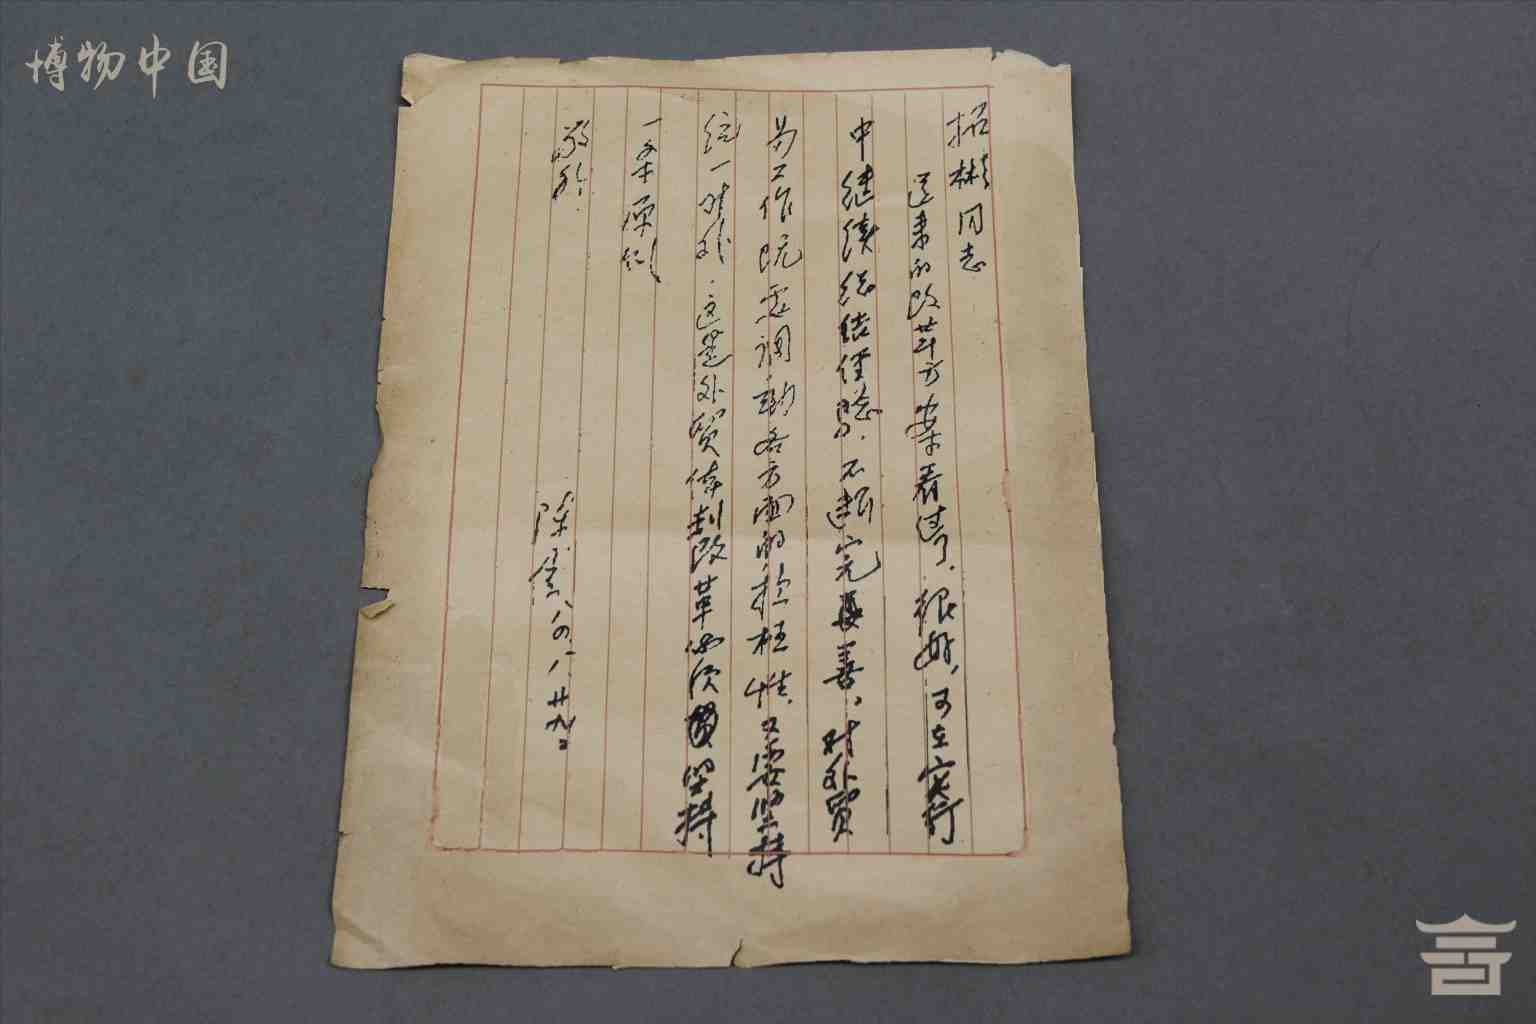 博物中国
招彬同志
送来的改革方案看清了．很好，可在实行
中继续总结经验．不断完善。对外贸
易工作既要调动各方面的积极性．又要坚持
统一对外．这是外贸体制改革必须坚持
一条原则
敬礼．
陈云八四．八．廿九日